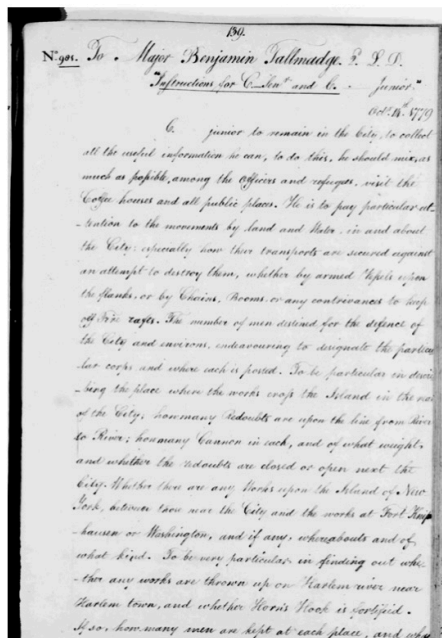 159.
No. 981. To Major Benjamin Tallmadge
Instructions for C. Senr. and C. Junior.
Octr. 14th 1779
C. junior to remain in the City, to collect
all the useful information he can, to do this, he should mix, as
much as possible, among the Officers and refugees, visit the
Coffee houses and all public places. He is to pay particular at-
-tention to the movements by land and Water, in and about
the City: especially how their transports are secured against
an attempt to destroy them, whether by armed Vessels upon
the flanks, or by Chains, Booms, or any contrivances to keep
off Fire rafts. The number of men destined for the defence of
the City and environs, endeavouring to designate the particu-
lar corps and where each is posted. To be particular in descri-
-bing the place where the works cross the Island in the rear
of the City; how many Redoubts are upon the line from River
to River; how many Cannon in each, and of what weight,
and whether the redoubts are closed or open next the
City. Whether there are any Works upon the Island of New
York, between those near the City and the works at Fort Knyp-
hausen or Washington, and if any, whereabouts and of
what kind. To be very particular in finding out whe-
-ther any works are thrown up on Harlem river near
Harlem town, and whether Horn's Hook is fortified.
If so, how many men are kept at each place, and